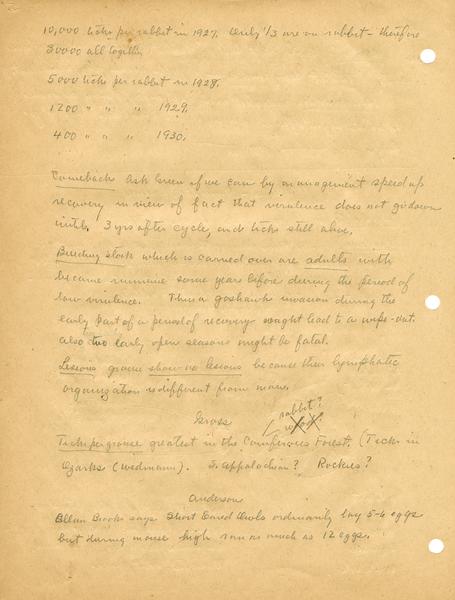 10,000 ticks per rabbit in 1927. Only 1/3 are on rabbit - therefore
30000 all together
5000 ticks per rabbit in 1928.
1200 " " " 1929.
400 " " " 1930.
Comeback Ask Green if we can by management speed up
recovery in view of fact that virulence does not go down
until 3 yrs after cycle, and ticks still alive.
Breeding stock which is carried over are adults with
became immune some years before during the period of
low virulence. Thus a goshawk invasion during the
early part of a period of recovery might lead to a wipe-out.
also too early open seasons might be fatal.
Lesions grouse show no lesions because their lymphatic
organization is different from man.
Gross
rabbit?
Ticks per grouse greatest in the Coniferous Forest, (Ticks in
Ozarks (Widmann). S. Appalachian? Rockies?
Anderson
Allan Brooks says Short Eared Owls ordinarily lay 5-6 eggs
but during mouse high run as much as 12 eggs.